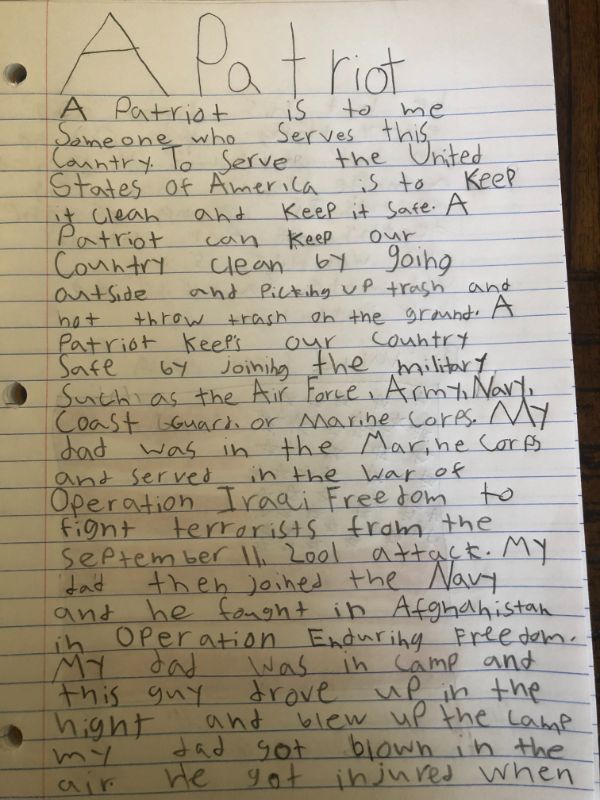 A Patriot
A Patriot is to me
Someone who serves this
Country. To Serve the United
States of America is to keep
it clean and keep it safe. A
Patriot can keep our
Country clean by going
outside and picking up trash and
not throw trash on the ground. A
Patriot keep's our country
Safe by joining the military
Such as the Air Force, Army, Navy,
Coast Guard, or Marine Corps. My
dad was in the Marine Corps
and served in the war of
Operation Iraqi Freedom to
fight terrorists from the
September 11, 2001 attack. My
dad then joined the Navy
and he fought in Afghanistan
in Operation Enduring Freedom.
My dad was in camp and
this guy drove up in the
night and blew up the camp
my dad got blown in the
air. He got injured when